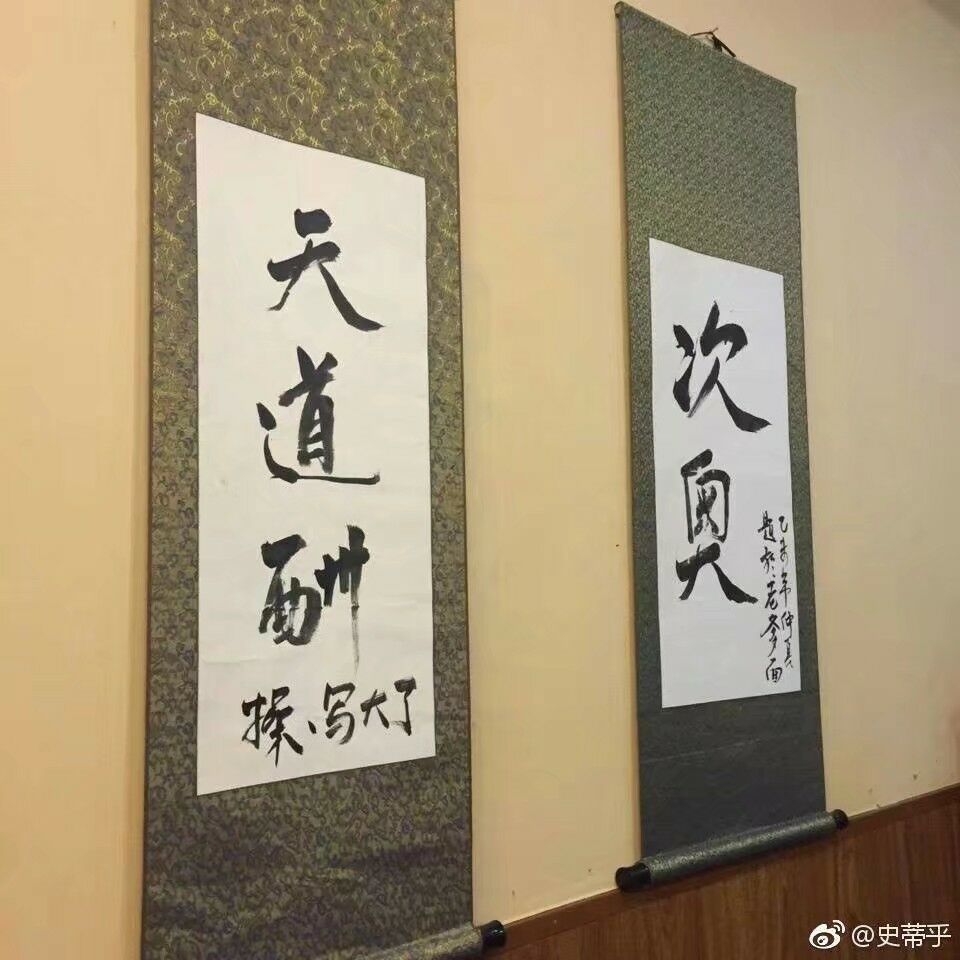 天道酬
操、写大了
次奥
乙未年仲夏
题於老爹面
@史蒂乎